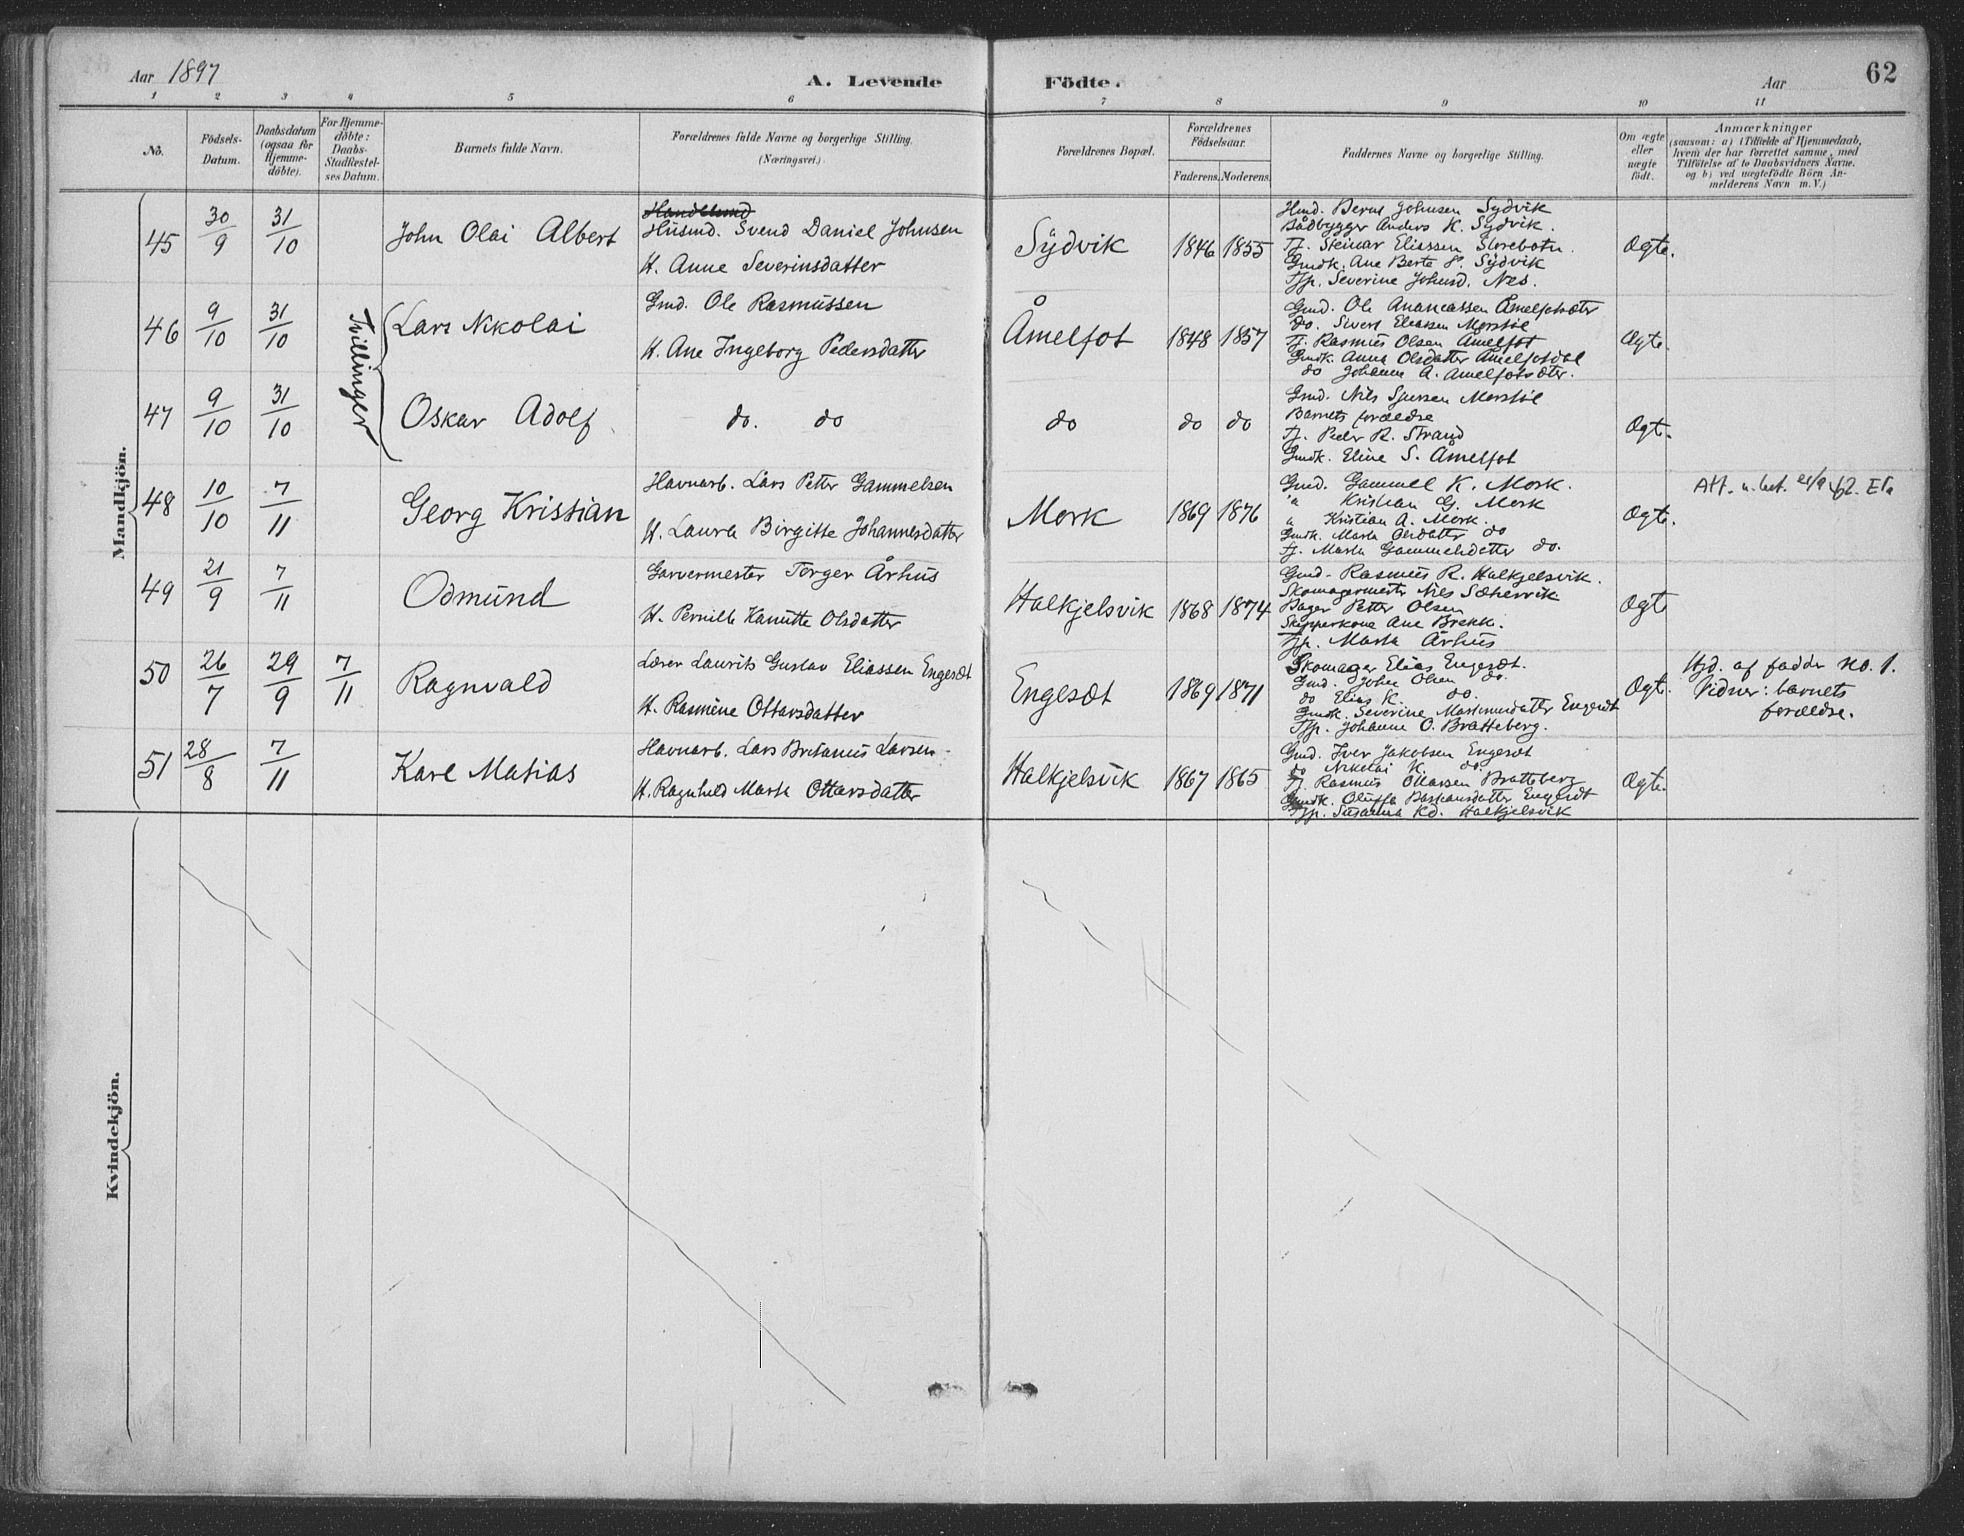 Aar 1897
A. Levende Födte.
Aar
62
1 2 3 4 5 6 7 8 9 10 11
No.
Födsels-Datum.
Daabsdatum (ogsaa for Hjemme-döbte).
For Hjemme-döbte: Daabs-Stadfæstel-ses Datum.
Barnets fulde Navn.
Forældrenes fulde Navne og borgerlige Stilling.
(Næringsvei.)
Forældrenes Bopæl.
Forældrenes Födselsaar.
Faderens. Moderens.
Faddernes Navne og borgerlige Stilling.
Om ægte eller uægte födt.
Anmærkninger
(saasom: a) i Tilfælde af Hjemmedaab,
hvem der har forrettet samme, med
Tilföielse af to Daabsvidners Navne.
og b) ved uegtefödte Börn An-
melderens Navn m. V.)
Mandkjön.
45 30/9 31/10 John Olai Albert
Husmd. Svend Daniel Johnsen
H. Anne Severinsdatter
Sydvik 1846 1855
Hmd. Bernt Johnsen Sydvik
Bådbygger Anders K. Sydvik.
Tj. Steinar Eliassen Storebotn.
Gmdk. Ane Berte P. Sydvik
Tjp. Severine Johnsd. Nes.
Ægte.
Tvillinger
46 9/10 31/10 Lars Nikolai
Gmd. Ole Rasmussen
H. Ane Ingeborg Pedersdatter
Åmelfot 1848 1857
Gmd. Ole Ananiassen Åmelfotsæter
do. Sivert Eliassen Morstøl
Tj. Rasmus Olsen Åmelfot
Gmdk. Anna Olsdatter Åmelfotdal
do Johanne A. Åmelfotsæter.
Ægte.
47 9/10 31/10 Oskar Adolf
do. do
do do do
Gmd. Nils Sjursen Morstøl
Barnets forældre
Tj. Peder R. Strand
Gmdk. Eline S. Åmelfot
Ægt.
48 10/10 7/11 Georg Kristian
Havnarb. Lars Peter Gammelsen
H. Laura Birgitte Johannesdatter
Mork 1869 1876
Gmd. Gammel K. Mork.
" Kristian G. Mork
" Kristian A. Mork.
Gmdk. Marta Olsdatter do
Tj. Marta Gammelsdatter do.
Ægte.
Att. u.
49 21/9 7/11 Odmund
Garvermester Torger Århus
H. Pernille Kanutte Olsdatter
Halkjelsvik 1868 1874
Gmd. Rasmus R. Halkjelsvik.
Skomagermester Nils Sætervik
Bager Petter Olsen
Skipperkone Ane Brekk.
Tjp. Marta Århus
Ægt
50 26/7 29/9 7/11 Ragnvald
Lærer Laurits Gustav Eliassen Engesæt
H. Rasmine Ottarsdatter
Engesæt 1869 1871
Skomager Elias Engesæt.
Gmd. John Olsen do.
do Elias K. do.
Gmdk. Severine Martinusdatter Engesæt
Tjp. Johanne O. Bratteberg.
Ægt.
Hjd. af fadder no. 1.
Vidner: barnets
forældre.
51 28/8 7/11 Karl Matias
Havnarb. Lars Britanus Larsen
H. Ragnhild Marta Ottarsdatter
Halkjelsvik 1867 1865
Gmd. Iver Jakobsen Engesæt
do Nikolai K. do.
Tj. Rasmus Ottarsen Bratteberg
Gmdk. Oluffa Bastiansdatter Engesæt
Tjp. Susanna Kd. Halkjelsvik
Ægte.
Kvindekjön.